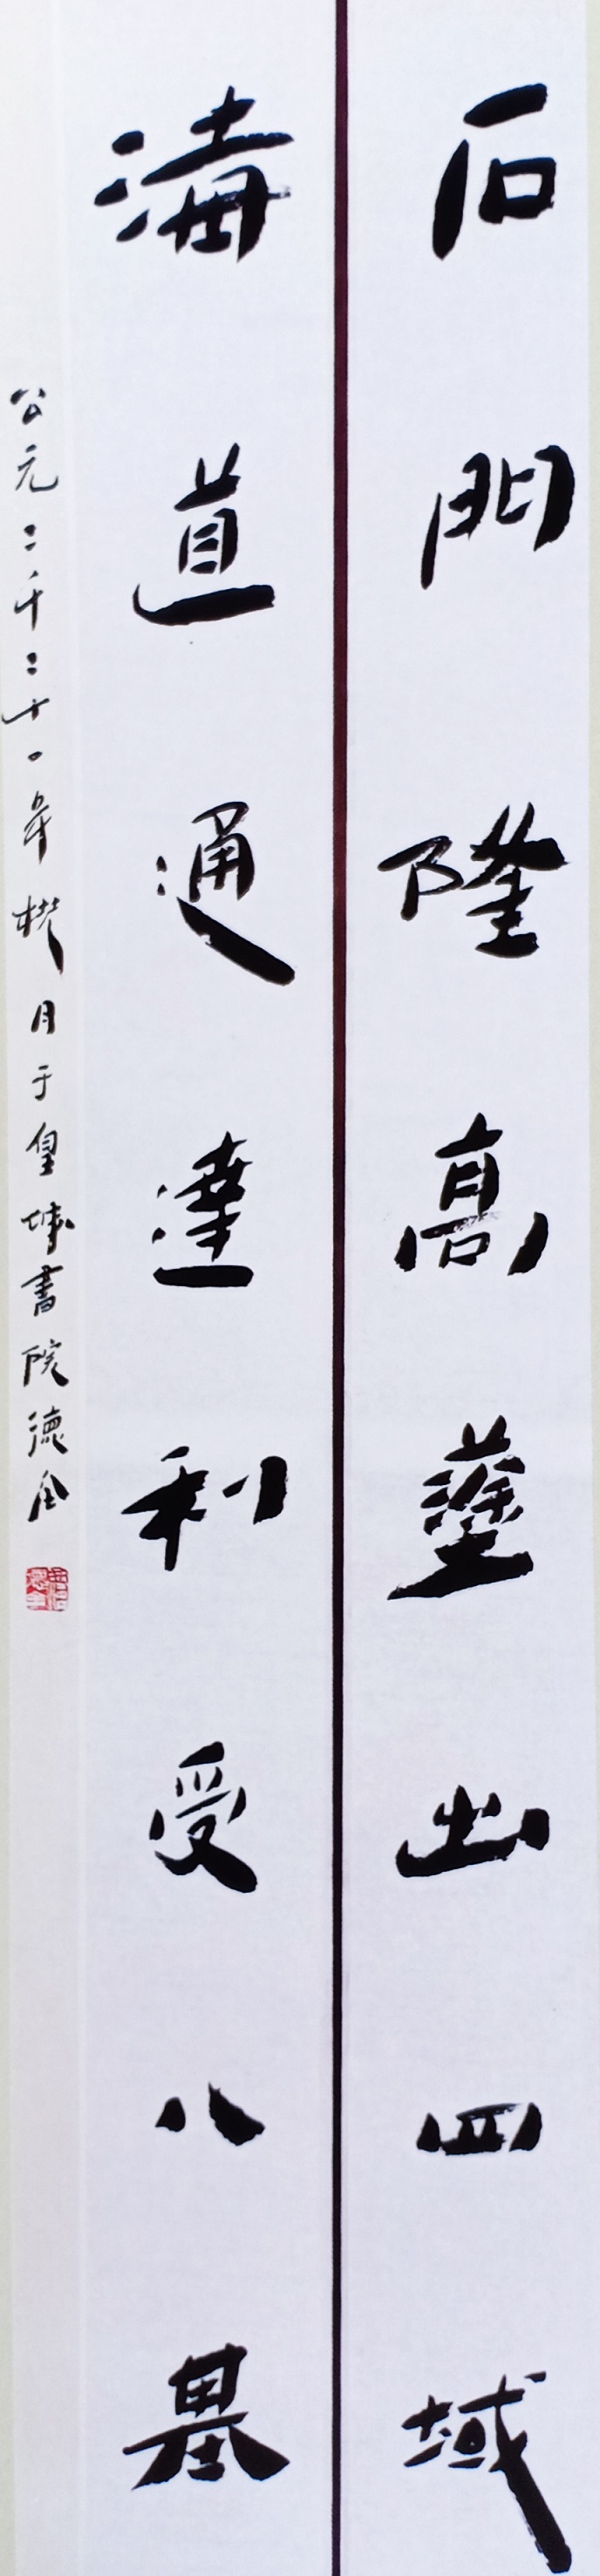 石門隆高蓋出四域
海道通達利受八基
公元二千二十一年樹月于皇城書院德全